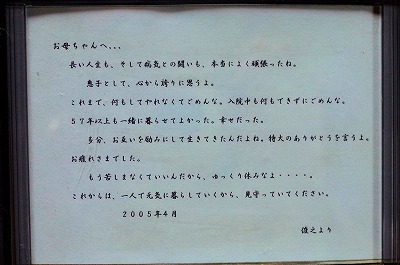 お母ちゃんへ...
長い人生も、そして病気との闘いも、本当によく頑張ったね。
息子として、心から誇りに思うよ。
これまで、何もしてやれなくてごめんな。入院中も何もできずにごめんな。
57年以上も一緒に暮らせてよかった。幸せだった。
多分、お互いを励みにして生きてきたんだよね。特大のありがとうを言うよ。
お疲れさまでした。
もう苦しまなくていいんだから、ゆっくり休みなよ・・・・。
これからは、一人で元気に暮らしていくから、見守っていてください。
2005年4月
俊之より